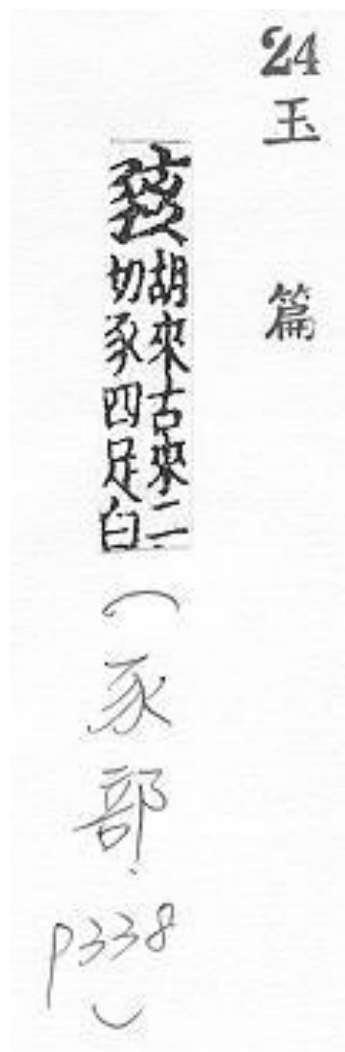 24玉篇
豥胡來古來二
切豕四足白
(豕部.P338)